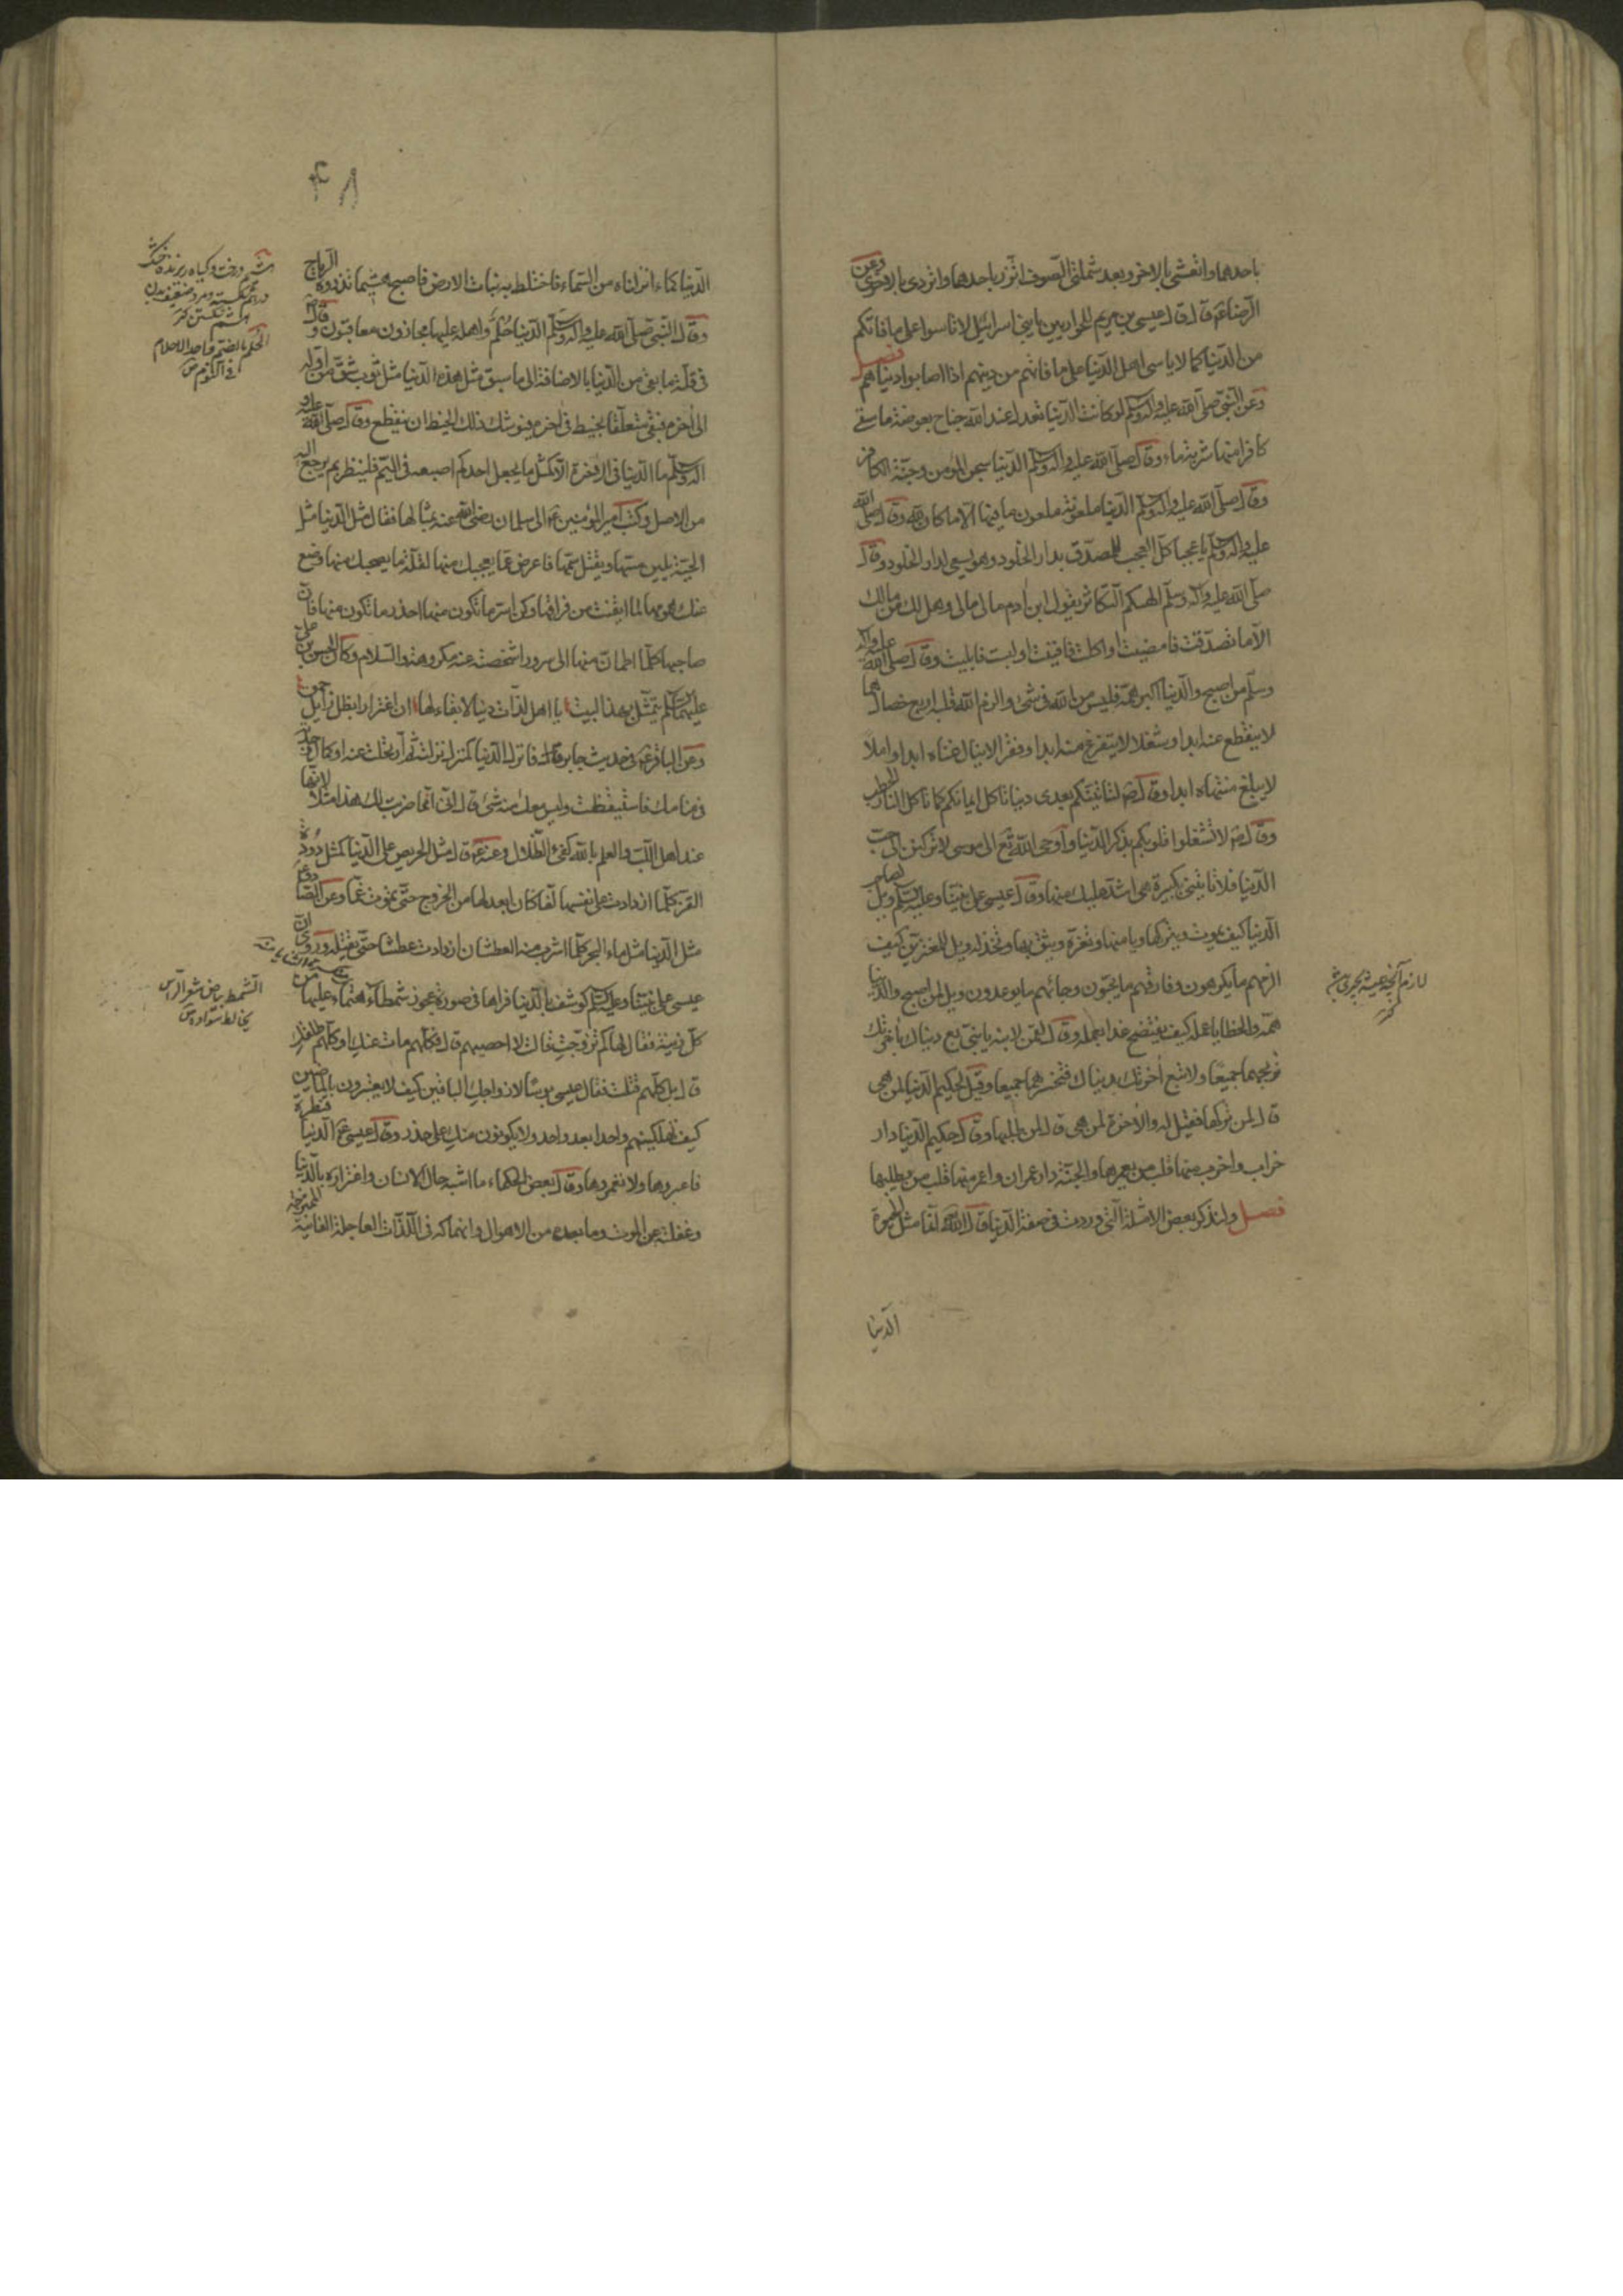 باحدهما واتعشى بالاخر وبعد شملتى الصوف اتزر باحدهما واتردى بالاخرى وعن
الرضا ع قال قال عيسى بن مريم للحواريين يا بنى اسرائيل لا تاسوا على ما فاتكم
من الدنيا كما لا ياسى اهل الدنيا على ما فاتهم من دينهم اذا اصابوا دنياهم فصل
وعن النبى صلى الله عليه واله وسلم لو كانت الدنيا تعدل عند الله جناح بعوضة ما سقى
كافرا منها شربة ماء وقال صلى الله عليه واله وسلم الدنيا سجن المؤمن وجنة الكافر
وقال صلى الله عليه واله وسلم الدنيا ملعونة ملعون ما فيها الا ما كان لله وقال صلى الله
عليه واله وسلم يا عجبا كل العجب للمصدق بدار الخلود وهو يسعى لدار الخلود وقال
صلى الله عليه واله وسلم الهيكم التكاثر يقول ابن ادم مالى مالى وهل لك من مالك
الا ما تصدقت فامضيت او اكلت فافنيت او لبست فابليت وقال صلى الله عليه واله
وسلم من اصبح والدنيا اكبر همه فليس من الله فى شئ والزم الله قلبه اربع خصال هما
لا ينقطع عنه ابدا وشغلا لا يتفرغ منه ابدا وفقرا لا ينال غناه ابدا واملا
لا يبلغ منتهاه ابدا وقال ص لتاتينكم بعدى دنيا تاكل ايمانكم كما تاكل النار الحطب
وقال ص لا تشغلوا قلوبكم بذكر الدنيا واوحى الله تع الى موسى لا تركنن الى حب
الدنيا فلن تاتينى بكبيرة هى اشد عليك منها وقال عيسى على نبينا وعليه السلم ويل لصاحب
الدنيا كيف يموت ويتركها ويامنها وتغره ويثق بها وتخذله ويل للمغترين كيف
الزمهم ما يكرهون وفارقهم ما يحبون وجائهم ما يوعدون وويل لمن اصبح والدنيا
همه والخطايا عمله كيف يفتضح غدا بعمله وقال لقمن لابنه يا بنى بع دنياك باخرتك
تربحهما جميعا ولا تبع اخرتك بدنياك فتخسرهما جميعا وقيل لحكيم الدنيا لمن هى
قال لمن تركها فقيل له والاخرة لمن هى قال لمن طلبها وقال حكيم الدنيا دار
خراب واخرب منها قلب من يعمرها والجنة دار عمران واعمر منها قلب من يطلبها
فصل ولنذكر بعض الامثلة التى وردت فى صفة الدنيا قال الله تع انما مثل الحيوة
الدنيا
الدنيا كماء انزلناه من السماء فاختلط به نبات الارض فاصبح هشيما تذروه الرياح
وقال النبى صلى الله عليه واله وسلم الدنيا حلم واهلها عليها مجازون معاقبون وقال ص
فى قلة ما بقى من الدنيا بالاضافة الى ما سبق مثل هذه الدنيا مثل ثوب شق من اوله
الى اخره فبقى متعلقا بخيط فى اخره فيوشك ذلك الخيط ان ينقطع وقال صلى الله عليه و
اله وسلم ما الدنيا فى الاخرة الا كمثل ما يجعل احدكم اصبعه فى اليم فلينظر بم يرجع اليه
من الاصل وكتب امير المؤمنين ع الى سلمان رضى الله عنه بمثالها فقال مثل الدنيا مثل
الحية يلين مسها ويقتل سمها فاعرض عما يعجبك منها لقلة ما يصحبك منها وضع
عنك همومها لما ايقنت من فراقها وكن اسر ما تكون منها احذر ما تكون منها فان
صاحبها كلما اطمان منها الى سرور اشخصته عنه مكروهة والسلام وكان الحسن بن على
عليهما السلم يتمثل بهذا البيت يا اهل لذات دنيا لا بقاء لها ان اغترارا بظل زايل حمق
وعن الباقر ع فى حديث جابر قال فانزل الدنيا كمنزل نزلته ثم ارتحلت عنه او كمال وجدته
فى منامك فاستيقظت وليس معك منه شئ قال انى انما ضربت لك هذا مثلا لانها
عند اهل اللب والعلم بالله كفئ الظلال وعنه ع قال مثل الحريص على الدنيا كمثل دودة
القز كلما ازدادت على نفسها لفا كان ابعد لها من الخروج حتى تموت غما وعن الصادق ع
مثل الدنيا مثل ماء البحر كلما شرب منه العطشان ازدادت عطشا حتى يقتله وروى ان
عيسى على نبينا وعليه السلم كوشف بالدنيا فراها فى صورة عجوز شمطاء هتماء عليها من
كل زينة فقال لها كم تزوجت فقالت لا احصيهم قال فكلهم مات عنك او كلهم طلقك
قال بل كلهم قتلت فقال عيسى بؤسا لازواجك الباقين كيف لا يعتبرون بالماضين
كيف تهلكينهم واحدا بعد واحد ولا يكونون منك على حذر وقال عيسى ع الدنيا قنطرة
فاعبروها ولا تعمروها وقال بعض الحكماء ما اشبه حال الانسان واغتراره بالدنيا
وغفلته عن الموت وما بعده من الاهوال وانهماكه فى اللذات العاجلة الفانية الممتزجة
درخت وكياه ريزنده خشك
الحلم بالضم واحد الاحلام
فى النوم ص
الشمط بياض شعر الراس
يخالط سواده ص